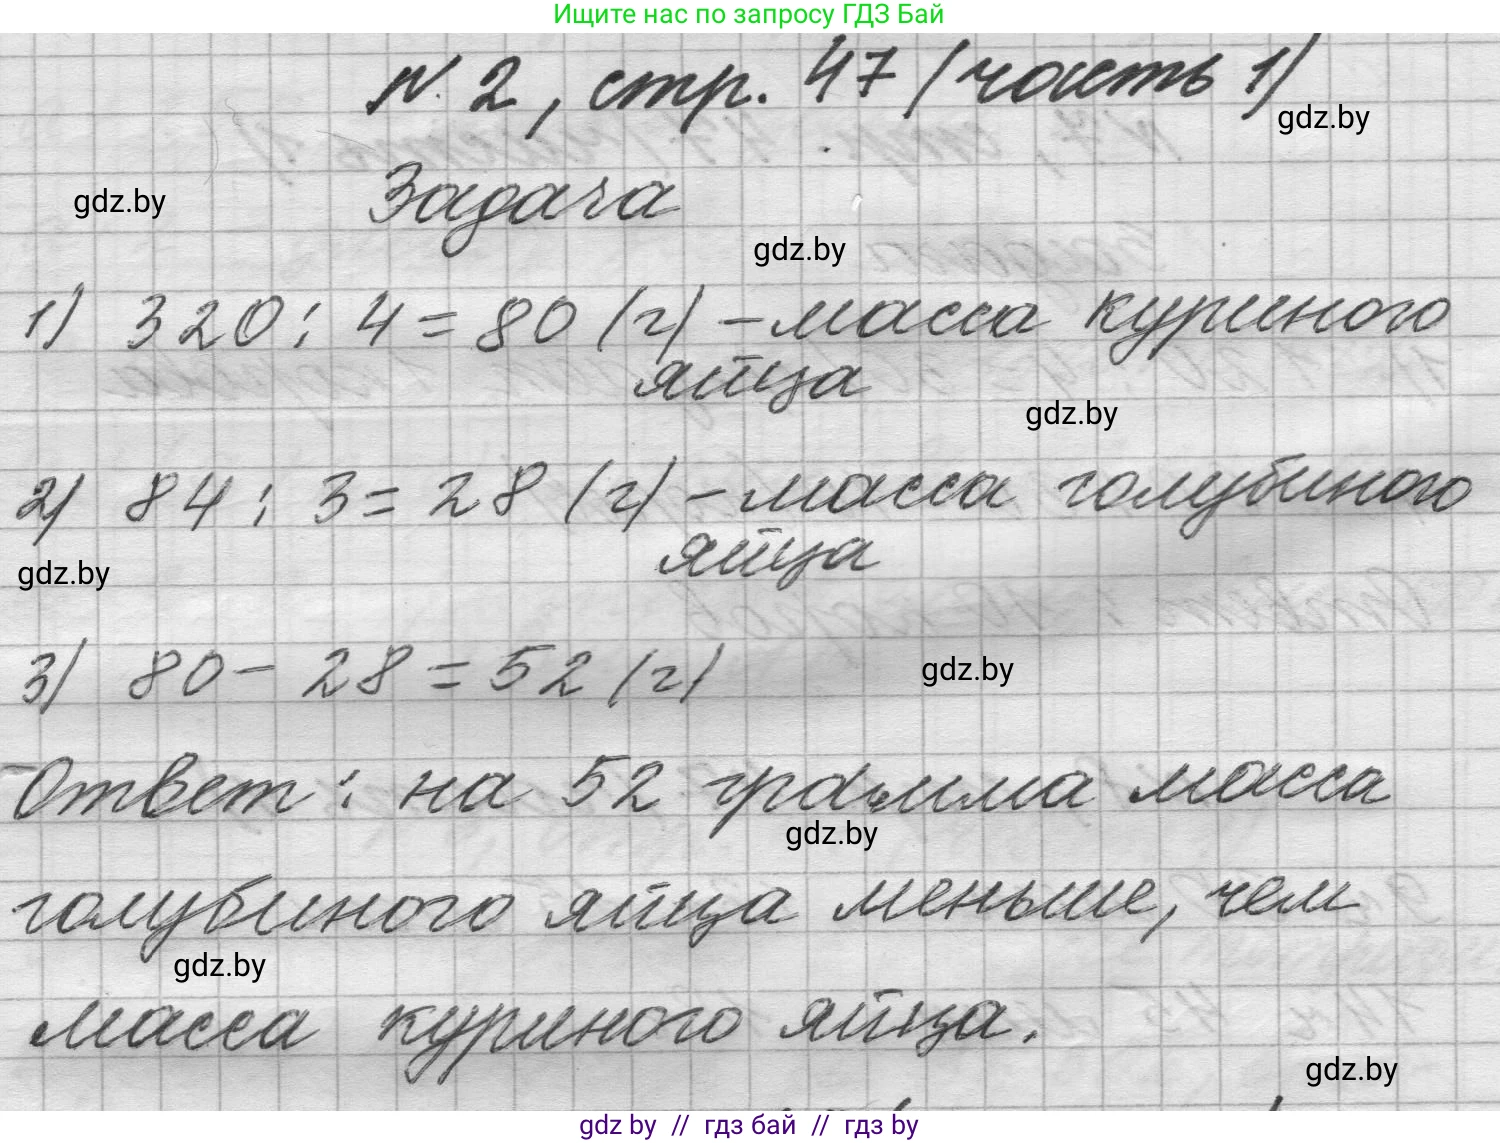 Ищите нас по запросу ГДЗ Бай
N. 2, стр. 47 (часть 1)
gdz.by
gdz.by
Задача
gdz.by
1) 320 : 4 = 80 (г) – масса куриного
яйца
gdz.by
2) 84 : 3 = 28 (г) – масса голубиного
яйца
gdz.by
3) 80 – 28 = 52 (г)
gdz.by
Ответ: на 52 грамма масса
gdz.by
голубиного яйца меньше, чем
gdz.by
масса куриного яйца.
gdz.by
gdz by // гдз бай // гдз by